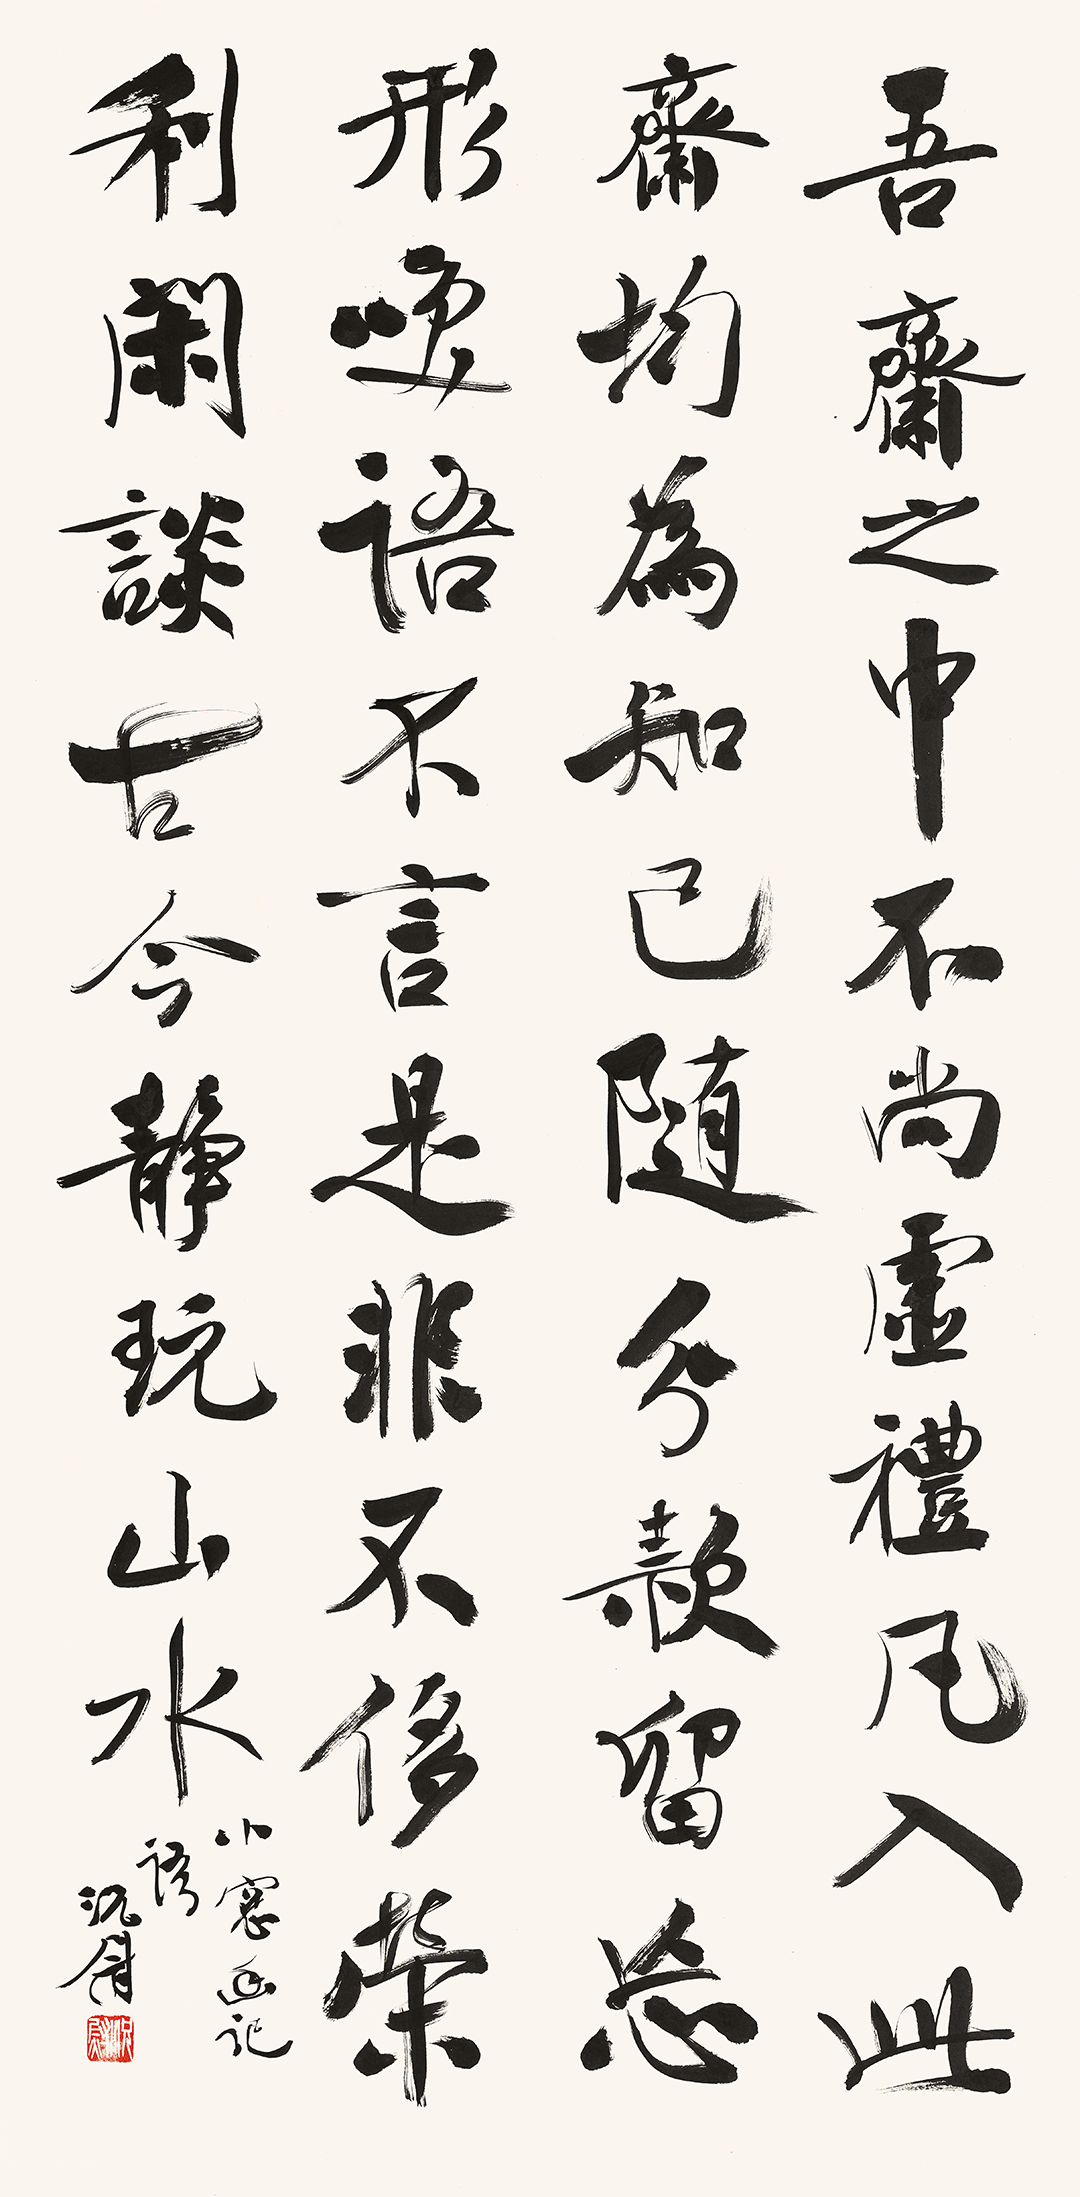 吾齋之中不尚虛禮凡入此
齋均為知己隨分款留忘
形咲語不言是非不侈榮
利閑談古今靜玩山水
小窻幽記
語